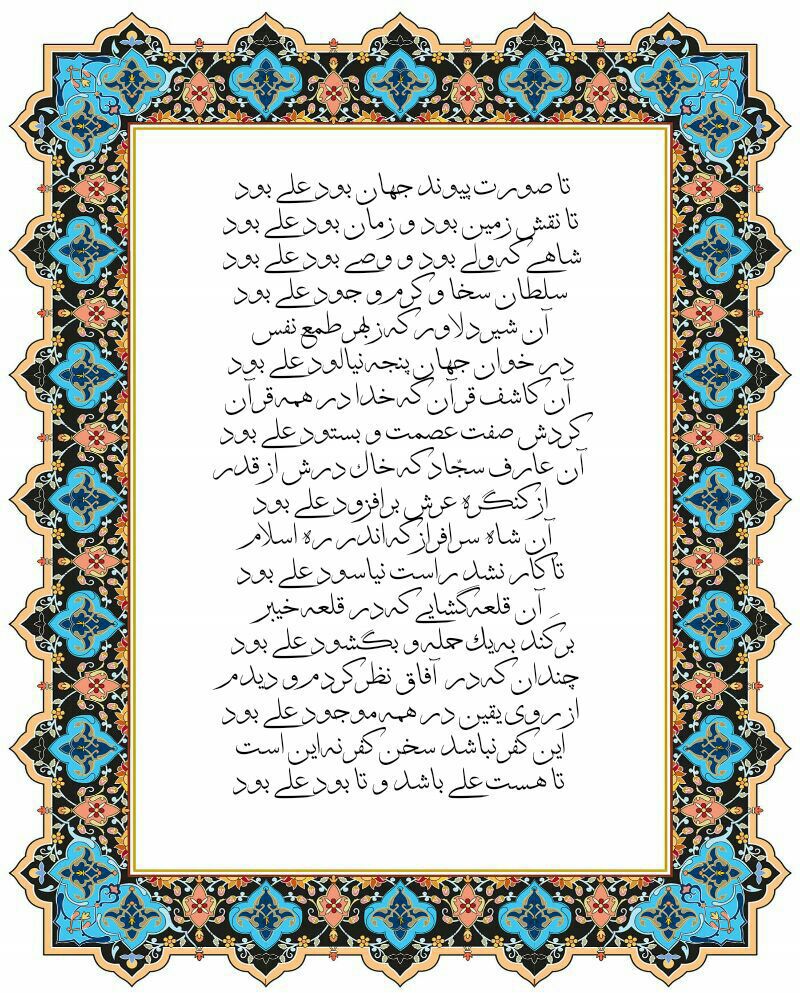 تا صورت پیوند جهان بود علے بود
تا نقش زمین بود و زمان بود علے بود
شاهے که ولے بود و وصے بود علے بود
سلطان سخا و کرم و جود علے بود
آن شیر دلاور که ز بهر طمع نفس
در خوان جهان پنجه نیالود علے بود
آن کاشف قرآن که خدا در همه قرآن
کردش صفت عصمت و بستود علے بود
آن عارف سجّاد که خاك درش از قدر
از کنگره عرش برافزود علے بود
آن شاه سرافراز که اندر ره اسلام
تا کار نشد راست نیاسود علے بود
آن قلعه گشایی که در قلعه خیبر
برکَند به یك حمله و بگشود علے بود
چندان که در آفاق نظر کردم و دیدم
از روی یقین در همه موجود علے بود
این کفر نباشد سخن کفر نه این است
تا هست علے باشد و تا بود علے بود